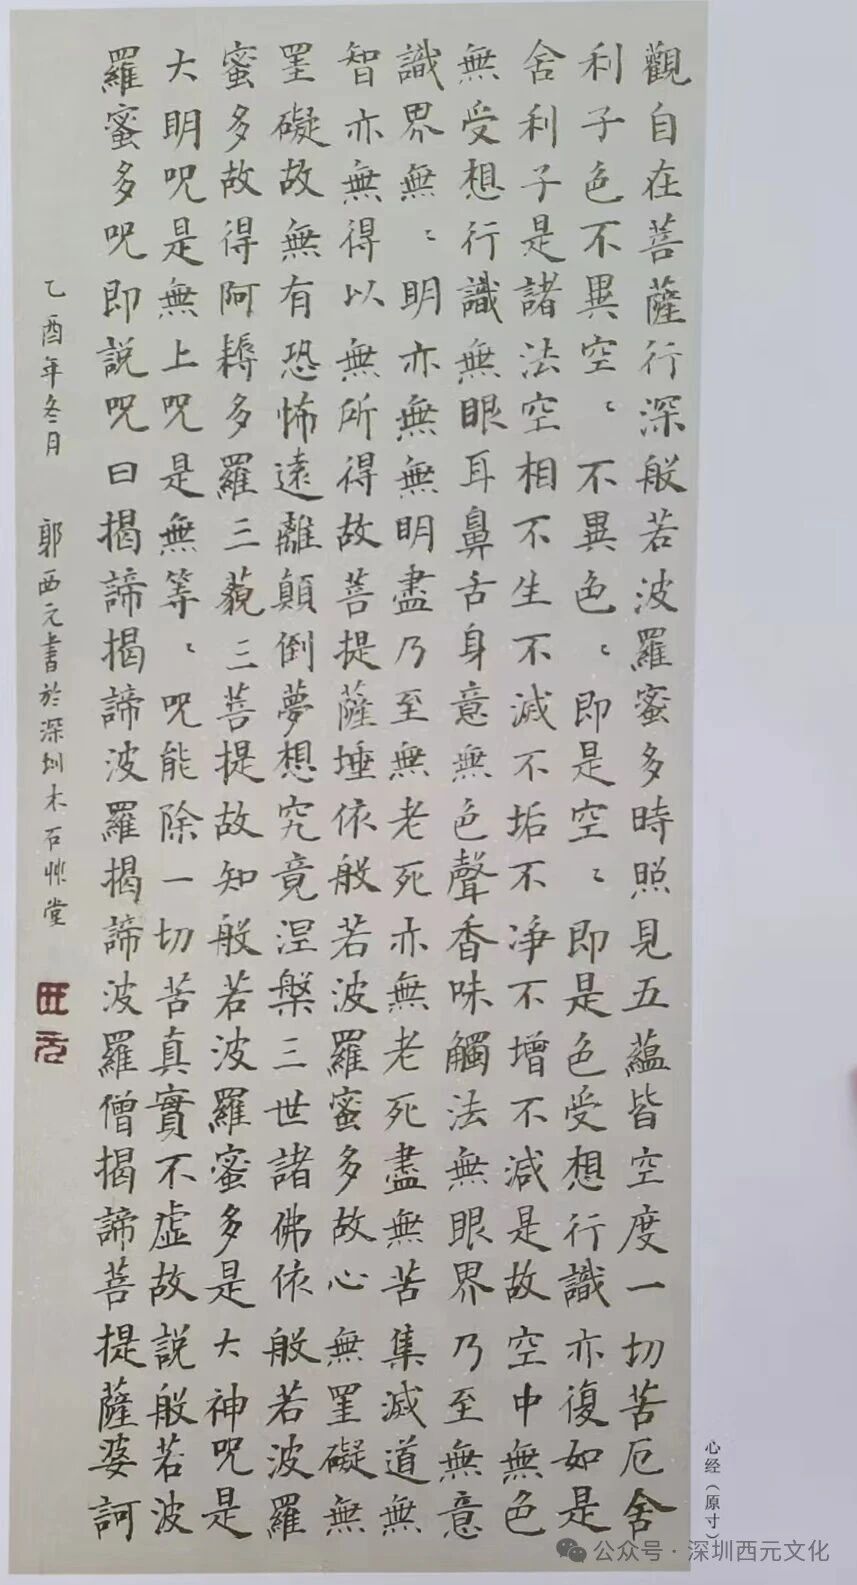 觀自在菩薩行深般若波羅蜜多時照見五蘊皆空度一切苦厄舍
利子色不異空〻不異色〻即是空〻即是色受想行識亦復如是
舍利子是諸法空相不生不滅不垢不淨不增不減是故空中無色
無受想行識無眼耳鼻舌身意無色聲香味觸法無眼界乃至無意
識界無〻明亦無無明盡乃至無老死亦無老死盡無苦集滅道無
智亦無得以無所得故菩提薩埵依般若波羅蜜多故心無罣礙無
罣礙故無有恐怖遠離顛倒夢想究竟涅槃三世諸佛依般若波羅
蜜多故得阿耨多羅三藐三菩提故知般若波羅蜜多是大神咒是
大明咒是無上咒是無等〻咒能除一切苦真實不虛故說般若波
羅蜜多咒即說咒曰揭諦揭諦波羅揭諦波羅僧揭諦菩提薩婆訶
乙酉年冬月 郭西元書於深圳木石艸堂
西元
心经（原寸）
公众号·深圳西元文化